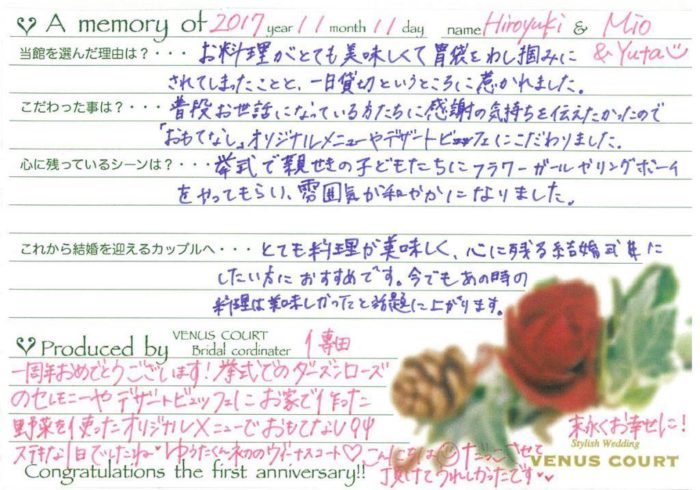 A memory of 2017 year 11 month 11 day name Hiroyuki & Mio
& Yuta
当館を選んだ理由は？・・・お料理がとても美味しくて胃袋をわし掴みに
されてしまったことと、一日貸切というところに惹かれました。
こだわった事は？・・・普段お世話になっている方たちに感謝の気持ちを伝えたかったので
「おもてなし」オリジナルメニューやデザートビュッフェにこだわりました。
心に残っているシーンは？・・・挙式で親せきの子どもたちにフラワーガールやリングボーイ
をやってもらい、雰囲気が和やかになりました。
これから結婚を迎えるカップルへ・・・とても料理が美味しく、心に残る結婚式に
したい方におすすめです。今でもあの時の
料理は美味しかったと話題に上がります。
Produced by VENUS COURT Bridal cordinater 傳田
一周年おめでとうございます！挙式でのダーズンローズ
のセレモニーやデザートビュッフェにお家で作った
野菜を使ったオリジナルメニューでおもてなし
ステキな1日でしたね ゆうたくん初のヴィーナスコート♡こんにちは だっこさせて
頂けてうれしかったです
末永くお幸せに！
Stylish Wedding
VENUS COURT
Congratulations the first anniversary!!